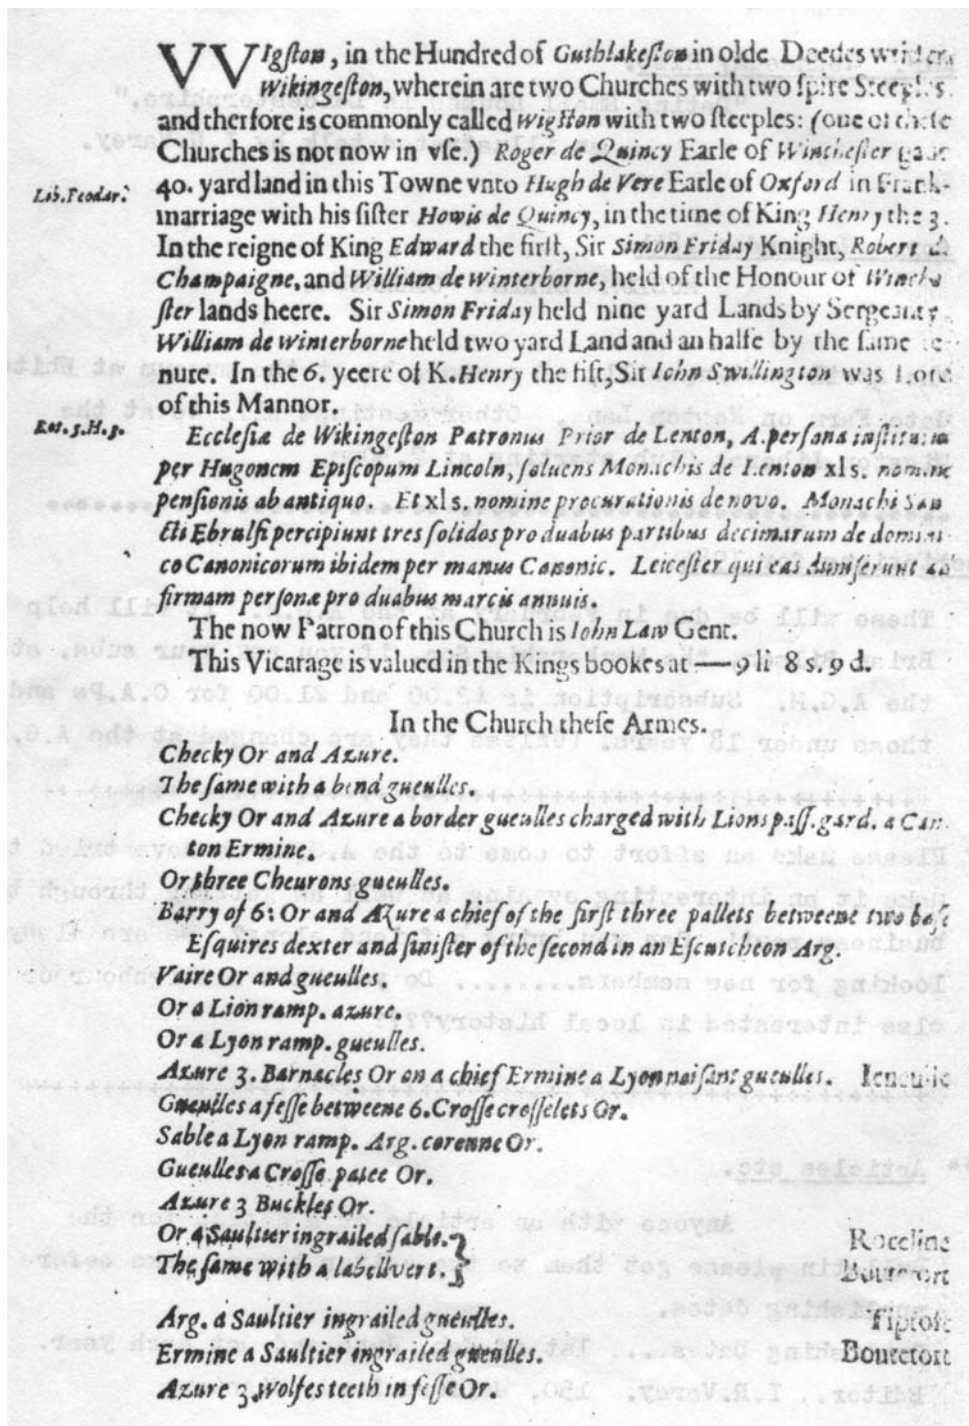 VVIgſton, in the Hundred of Guthlakeſton in olde Deedes
Wikingeſton, wherein are two Churches with two ſpire
and therfore is commonly called Wigſton with two ſteeples: (one of theſe
Churches is not now in vſe.) Roger de Quincy Earle of Wincheſter gaue
Lib. Feodar.
40. yard land in this Towne vnto Hugh de Vere Earle of Oxford in Frank-
marriage with his ſiſter Howis de Quincy, in the time of King Henry the 3.
In the reigne of King Edward the firſt, Sir Simon Friday Knight, Robert
Champaigne, and William de Winterborne, held of the Honour of
ſter lands heere. Sir Simon Friday held nine yard Lands by Sergeanty
William de Winterborne held two yard Land and an halfe by the ſame te-
nure. In the 6. yeere of K. Henry the fift, Sir Iohn Swillington was Lord
of this Mannor.
Eccleſiæ de Wikingeſton Patronus Prior de Lenton, A. perſona
per Hugonem Epiſcopum Lincoln, ſoluens Monachis de Lenton xl s. nomine
penſionis ab antiquo. Et xl s. nomine procurationis de novo. Monachi San
cti Ebrulfi percipiunt tres ſolidos pro duabus partibus decimarum de domini
co Canonicorum ibidem per manus Canonic. Leiceſter qui eas dimiſerunt ad
firmam perſonæ pro duabus marcis annuis.
The now Patron of this Church is Iohn Law Gent.
This Vicarage is valued in the Kings bookes at — 9 li 8 s. 9 d.
In the Church theſe Armes.
Checky Or and Azure.
The ſame with a bend gueulles.
Checky Or and Azure a border gueulles charged with Lions paſſ. gard. a Can-
ton Ermine.
Or three Cheurons gueulles.
Barry of 6: Or and Azure a chief of the firſt three pallets betweene two baſe
Eſquires dexter and ſiniſter of the ſecond in an Eſcutcheon Arg.
Vaire Or and gueulles.
Or a Lion ramp. azure.
Or a Lyon ramp. gueulles.
Azure 3. Barnacles Or on a chief Ermine a Lyon naiſant gueulles.
Gueulles a feſſe betweene 6. Croſſe croſſelets Or.
Sable a Lyon ramp. Arg. coronne Or.
Gueulles a Croſſe patee Or.
Azure 3 Buckles Or.
Or a Saultier ingrailed ſable. Roceline
The ſame with a labell vert. Boutetort
Arg. a Saultier ingrailed gueulles. Tiptoft
Ermine a Saultier ingrailed gueulles. Boutetort
Azure 3. Wolfes teeth in feſſe Or.